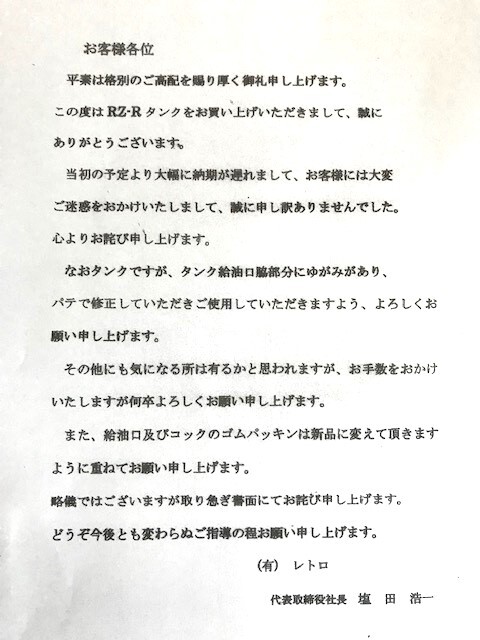 お客様各位
平素は格別のご高配を賜り厚く御礼申し上げます。
この度は RZ-R タンクをお買い上げいただきまして、誠に
ありがとうございます。
当初の予定より大幅に納期が遅れまして、お客様には大変
ご迷惑をおかけいたしまして、誠に申し訳ありませんでした。
心よりお詫び申し上げます。
なおタンクですが、タンク給油口脇部分にゆがみがあり、
パテで修正していただきご使用していただきますよう、よろしくお
願い申し上げます。
その他にも気になる所は有るかと思われますが、お手数をおかけ
いたしますが何卒よろしくお願い申し上げます。
また、給油口及びコックのゴムパッキンは新品に変えて頂きます
ように重ねてお願い申し上げます。
略儀ではございますが取り急ぎ書面にてお詫び申し上げます。
どうぞ今後とも変わらぬご指導の程お願い申し上げます。
(有) レトロ
代表取締役社長 塩 田 浩一